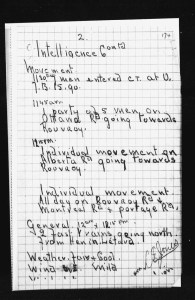 2.
(Intelligence Contd
Movement
men entered C.T. at U.
7.B.15.90.
11.45 am.
A party of 5 men on
Ottawa Rd going towards
Rouvroy.
Individual movement on
Alberta Rd going towards
Rouvroy.
Individual movement
All day on Rouvroy Rd
Montreal Rd & Portage Rd.
General.
2 fast trains going north
from Henin Lietard.
Weather. Fair & Cool.
Wind Mild